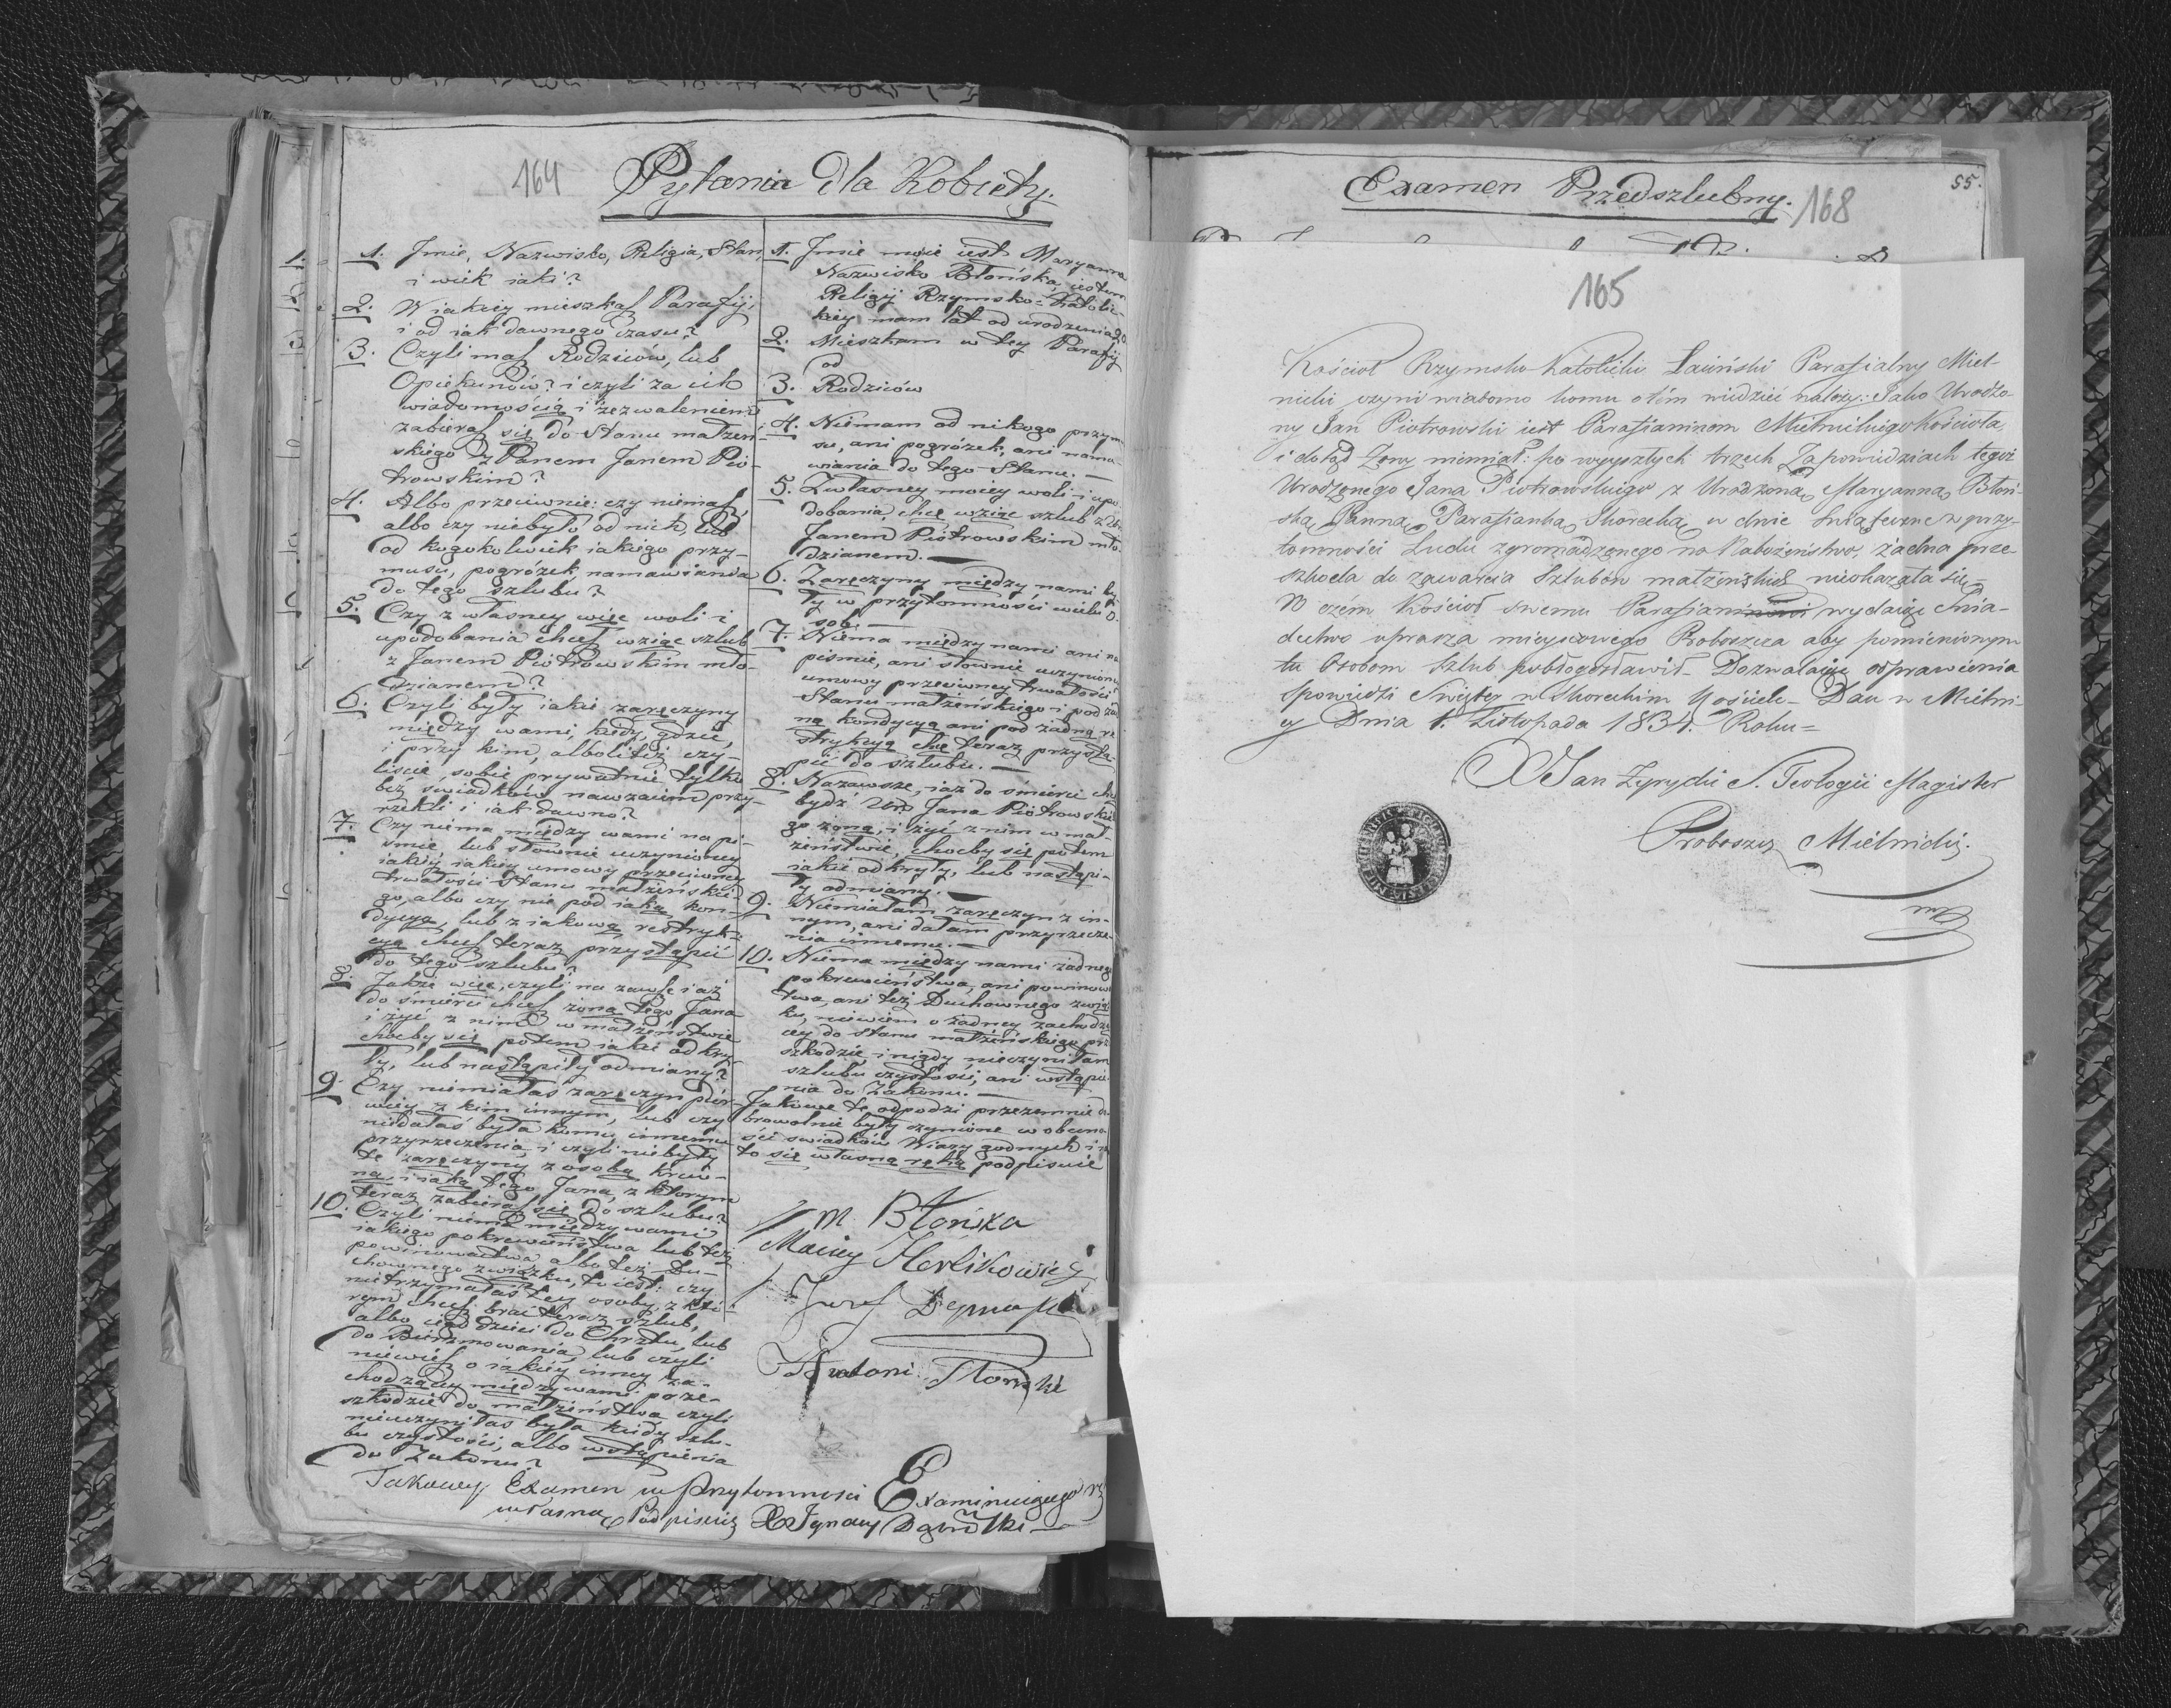 164
Pytania dla Kobiety.
1. Jmie, Nazwisko, Religia, Stan,
i wiek iaki?
2. W iakiey mieszkasz Parafij,
i od iak dawnego czasu?
3. Czyli masz Rodziców, lub
Opiekunów? i czyli za ich
wiadomością i zezwaleniem
zabierasz się do Stanu małżeń-
skiego z Panem Janem Pio-
trowskim?
4. Albo przeciwnie: czy niemasz,
albo czy niebyło od nich, lub
od kogokolwiek iakiego przy-
musu, pogróżek, namawiania
do tego szlubu?
5. Czy z własney więc woli i
upodobania chcesz wziąć szlub
z Janem Piotrowskim mło-
dzianem?
6. Czyli były iakie zaręczyny
między wami, kiedy, gdzie,
i przy kim, albolitéż czy-
liście, sobie prywatnie tylko
bez swiadków nawzaiem przy-
rzekli, i iak dawno?
7. Czy niema między wami na pi-
śmie, lub słownie uczynioney
iakiey umowy przeciwney
trwałości Stanu małżeńskie-
go, albo czy nie pod iaką kon-
dycyą, lub z iakową restryk-
cyą chcesz teraz przystąpić
do tego szlubu?
8. Jakże więc, czyli na zawsze i aż
do śmierci chcesz żoną tego Jana
i żyć z nim w małżeństwie
choćby się potem iakie odkry-
ły, lub nastąpiły odmiany?
9. Czy niemiałaś zaręczyn pier-
wiey z kim innym, lub czy
niedałaś była komu innemu
przyrzeczenia, i czyli niebyły
te zaręczyny z osobą krew-
ną, i iaką tego Jana, z którym
teraz zabierasz się do szlubu?
10. Czyli niema między wami
iakiego pokrewieństwa lub téż
powinowactwa albo téż Du-
chownego związku, to iest: czy
nietrzymałaś tey osoby, z któ-
rym chcesz brać teraz szlub,
albo iego dzieci do Chrztu, lub
do Bierzmowania, lub czyli
niewiesz o iakiey inney za-
chodzącey między wami prze-
szkodzie do małżeństwa czyli
nieuczyniłaś była kiedy szlu-
bu czystości, albo wstąpienia
do Zakonu?
1. Jmie moie iest Maryanna
Nazwisko Błońska, iestem
Religij Rzymsko-Katolic-
kiey mam lat od urodzenia
2. Mieszkam w tey Parafij
od
3. Rodziców
4. Niemam od nikogo przym-
su, ani pogróżek, ani nama-
wiania do tego Stanu.
5. Zwłasney moiey woli i upo-
dobania chcę wziąc szlub z
Janem Piotrowskim mło-
dzianem.
6. Zaręczyny między nami by-
ły w przytomności wielu o-
sob.
7. Niema między nami ani na
piśmie, ani słownie uczynioney
umowy przeciwney trwałości
Stanu małżeńskiego i pod żad-
ną kondycyą ani pod żadną re-
strykcyą chcę teraz przystą-
pić do szlubu.
8. Nazawsze, i aż do śmierci chcę
bydź Jana Piotrowskie-
go żoną, i żyć z nim w mał-
żeństwie, choćby się potem
iakie odkryły, lub nastąpi-
ły odmiany.
9. Niemiałam zaręczyn z in-
nym, ani dałam przyrzecze-
nia innemu.
10. Niema między nami żadnego
pokrewieństwa, ani powinowac-
twa, ani téż Duchownego związ-
ku, niewiem o żadney zachodzą-
cey do stanu małżeńskiego prze-
szkodzie i nigdy nieczyniłam
szlubu czystości, ani wstąpie-
nia do Zakonu.
Jakowe te odpodzi przezemnie do-
browolnie były czynione w obecno-
ści swiadków Wiary godnych i na
to się własną ręką podpisuię
M Błońska
Maciey
Jozef
Antoni
Takowey Examen w przytomności Examinuiącego
własną Podpisuię X Jgnacy
Examen Przedszlubny.
168
55.
165
Kościoł Rzymsko-Katolicki Łaciński Parafialny Miel-
nicki czyni wiadomo komu o tém wiedzieć należy: Jako Urodzo-
ny Jan Piotrowski iest Parafianinem Mielnickiego Kościoła
i dotąd Żony niemiał: po wyyszłych trzech Zapowiedziach tegoż
Urodzonego Jana Piotrowskiego z Urodzoną Maryanną Błoń-
ską Panną Parafianką Skorecką w dnie Swiąteczne w przy-
tomności Ludu zgromadzonego na Nabożeństwo, żadna prze-
szkoda do zawarcia Szlubów małżeńskich nieokazała się-
W czém Kościoł swemu Parafianinowi wydaiąc Swia-
dectwo uprasza mieyscowego Proboszcza aby pomienionym
tu Osobom Szlub pobłogosławił- Dozwalaiąc odprawienia
Spowiedzi Swiętey w Skoreckim Kościele- Dan w Mielni-
cy Dnia 1. Listopada 1834. Roku=
X Jan Zyrycki S. Teologii Magister
Proboszcz Mielnicki.